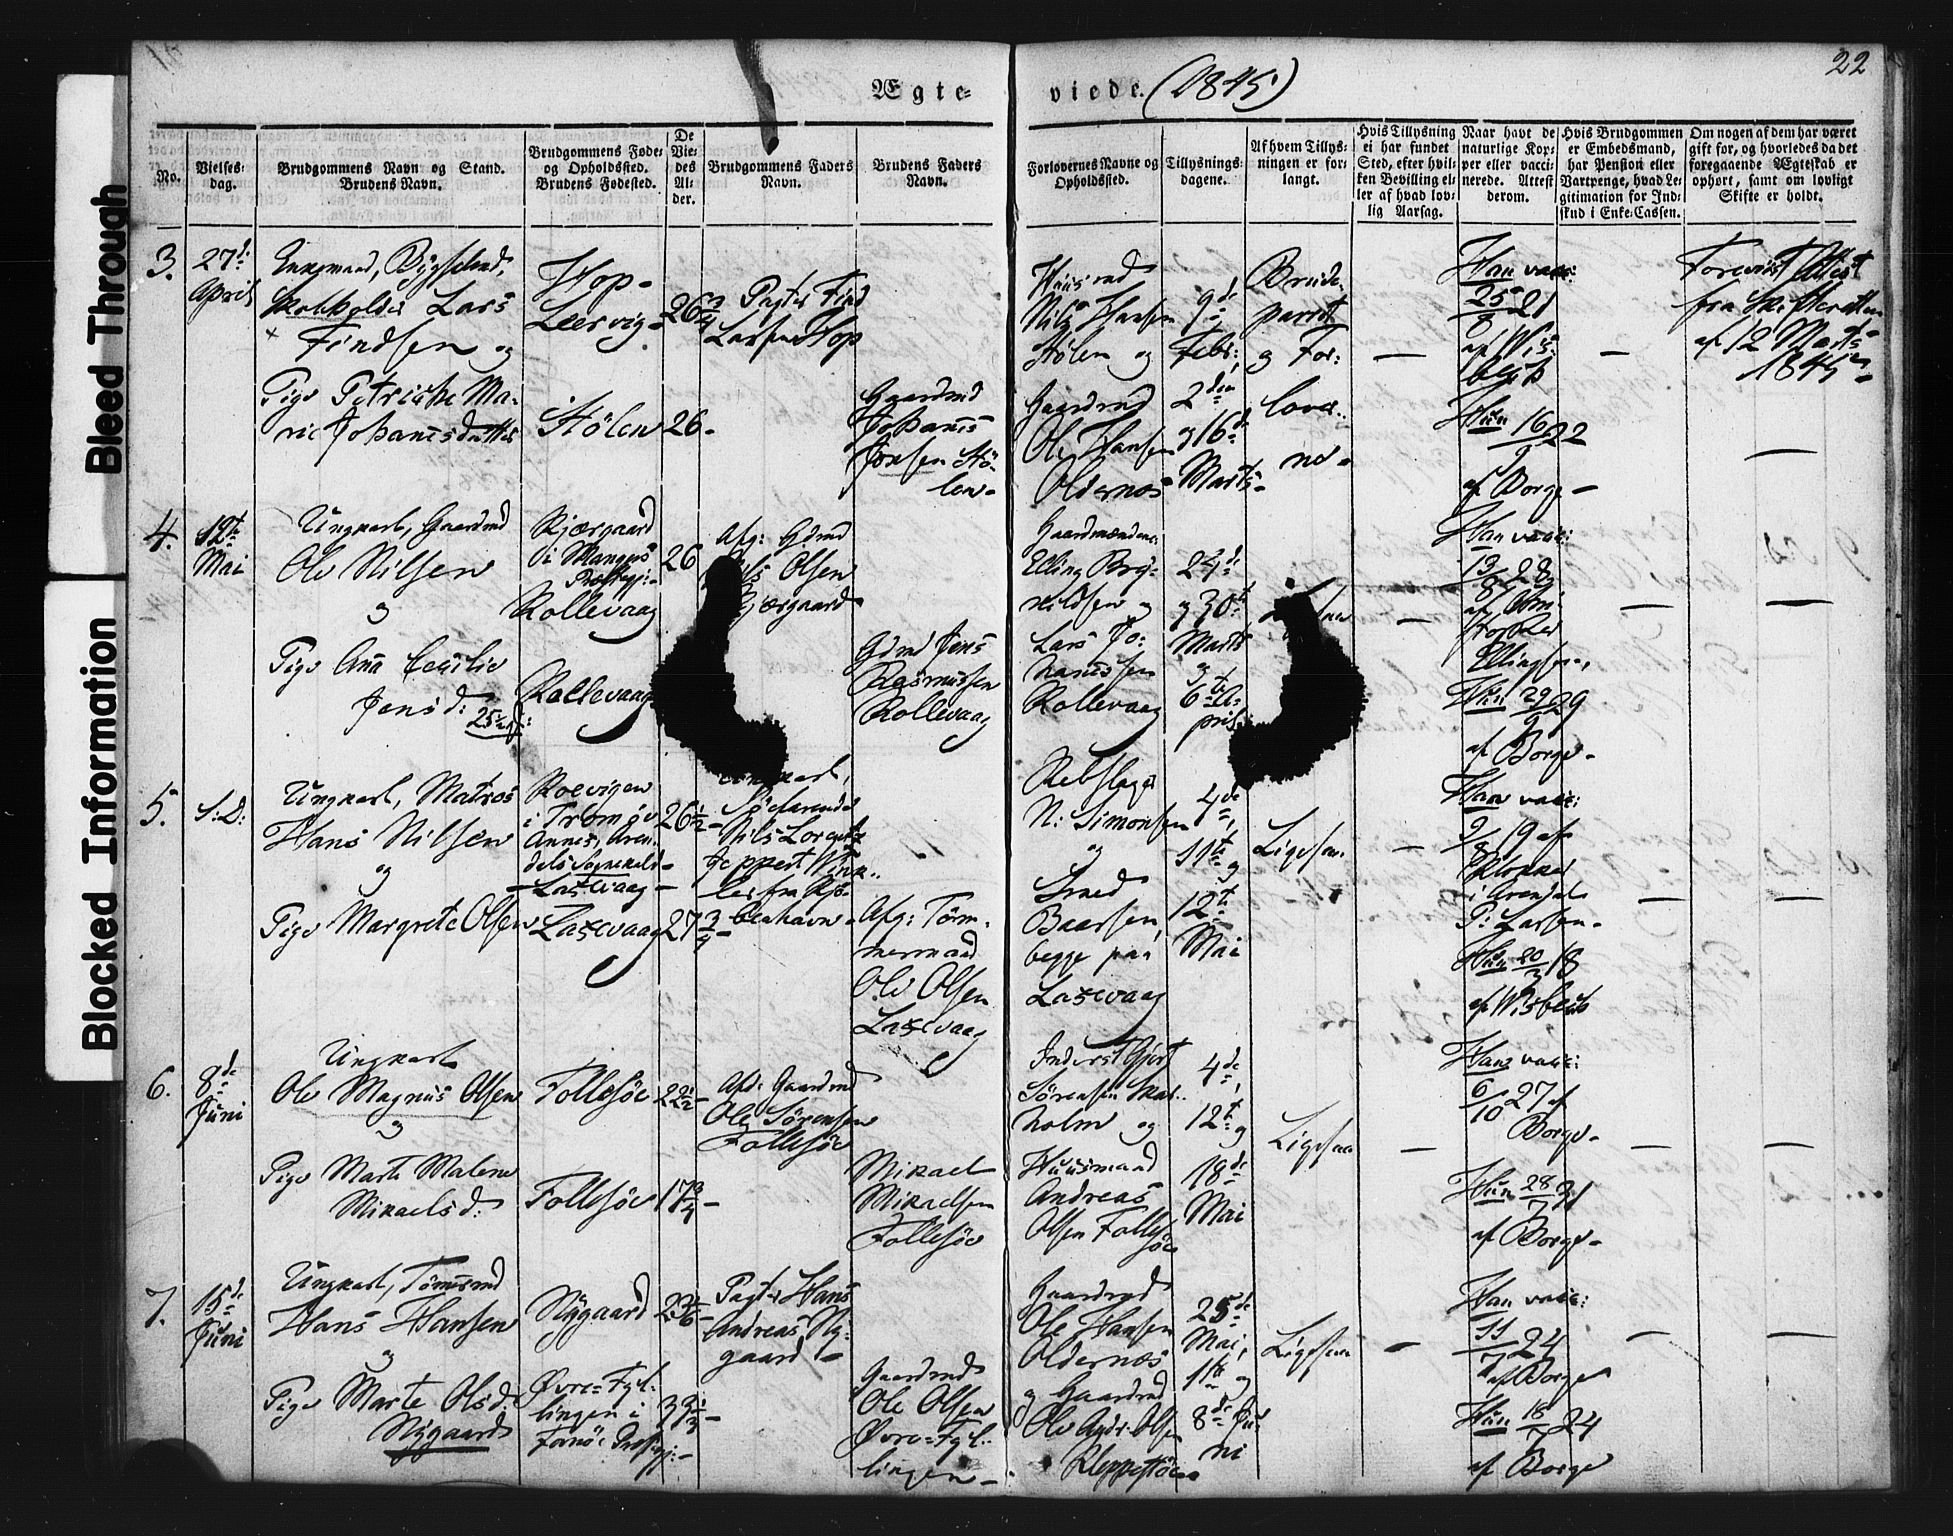 22
Ægte-
viede. (1845)
Blocked Information
Bleed Through
No.
Vielses-
dag.
Brudgommens Navn og Stand.
Brudens Navn.
Brudgommens Føde-
og Opholdssted.
Brudens Fødested.
De
Vie-
des
Al-
der.
Brudgommens Faders
Navn.
Brudens Faders
Navn.
Forlovernes Navne og
Opholdssted.
Tillysnings-
dagene.
Af hvem Tillys-
ningen er for-
langt.
Hvis Tillysning
ei har fundet
Sted, efter hvil-
ken Bevilling el-
ler af hvad lov-
lig Aarsag.
Naar havt de
naturlige Kop-
per eller vacci-
nerede. Attest
derom.
Hvis Brudgommen
er Embedsmand,
har Pension eller
Vartpenge, hvad Le-
gitimation for Ind-
skud i Enke-Cassen.
Om nogen af dem har været
gift for, og hvorledes da det
foregaaende Ægteskab er
ophørt, samt om lovligt
Skifte er holdt.
3.
27de
April
Enkemand, Bygselmd,
Skolholder Lars
Findsen og
Pige Petriche Ma-
rie Johannesdatter
Hop-
Leervig-
Stølen
26 3/4
26-
Pagter Find
Larsen Hop
Gaardmd
Johannes
Jonsen Stø-
len-
Huusmd
Nils Hansen
Stølen og
Gaardmd
Ole Hansen
Oldernæs
9de
Febr:,
2den
og 16de
Marts-
Brude-
parret
og For:
lover..
ne-
—
Han vacc:
25/8 21
af Wis-
bech
Hun 16/9 22
af Borge-
—
Forevist Attest
fra Skifteretten
af 12 Marts
1845-
—
4.
12te
Mai
Ungkarl, Gaardmd
Ole Nilsen
og
Pige Ana Cecilie
Jensd:
Kjærgaard
i Mangers
Præstegj:-
Rollevaag
Rollevaag
26
Afg: Gdmd
Olsen
Gdmd Jens
Rasmussen
Rollevaag
Gaardmændene
Elling Bry-
nildsen og
Lars Jo-
hannessen
Rollevaag
24de
og 30te
Marts
og
6te A-
pril
—
Han vacc:
13/8 28
Ellingsen,
Hun 29/9 29
af Borge-
—
—
5.
S: D:
Ungkarl, Matros
Hans Nilsen
og
Pige Margrete Olsen
Roevigen
i Tromøe
Annex, Aren-
dels Sognekald-
- Laxevaag-
Laxevaag
26 1/2-
27 3/4-
Søefarende
Nils Lorentz
Jeppert Wink..
ler fra Kjø-
benhavn-
Afg: Tøm-
mermand
Ole Olsen
Laxevaag
Rebslager
N: Simonsen
og
Smed
Baarsen,
begge paa
Laxevaag
4de,
11te og
12te
Mai
Ligesaa
—
Han vacc:
9/8 19 af
Klokker
i Arendal
P: Larsen-
Hun 20/3 18
af Wisbech
—
—
6.
8de
Juni
Ungkarl
Ole Magnus Olsen
og
Pige Marte Malene
Mikaelsd:
Follesøe
Follesøe
22 1/2-
17 3/4-
Afd: Gaardmd
Ole Sørensen
Follesøe
Mikael
Mikaelsen
Follesøe
Inderst Gjert
Sørensen Skar..
holm og
Huusmand
Andreas
Olsen Folle-
søe
4de,
12te og
18de
Mai
Ligesaa
—
Han vacc:
6/10 27 af
Borge-
Hun 28/7 31
af Borge-
—
—
7.
15de
Juni
Ungkarl, Tømmermd
Hans Hansen
og
Pige Marte Olsd:
Nygaard
Nygaard
Øvre-Fyl-
lingen i
23 1/6-
33 1/3-
Pagter Hans
Andreas Ny-
gaard-
Gaardmd
Ole Olsen
Øvre-Fyl..
lingen-
Gaardmd
Ole Hansen
Oldernæs
og Gaardmd
Ole Andr: Olsen
Kleppestøe-
25de
Mai,
1te og
8de Ju-
ni
Ligesaa
—
Han vacc:
11/7 24
af Borge
Hun 18/7 24
af Borge
—
—